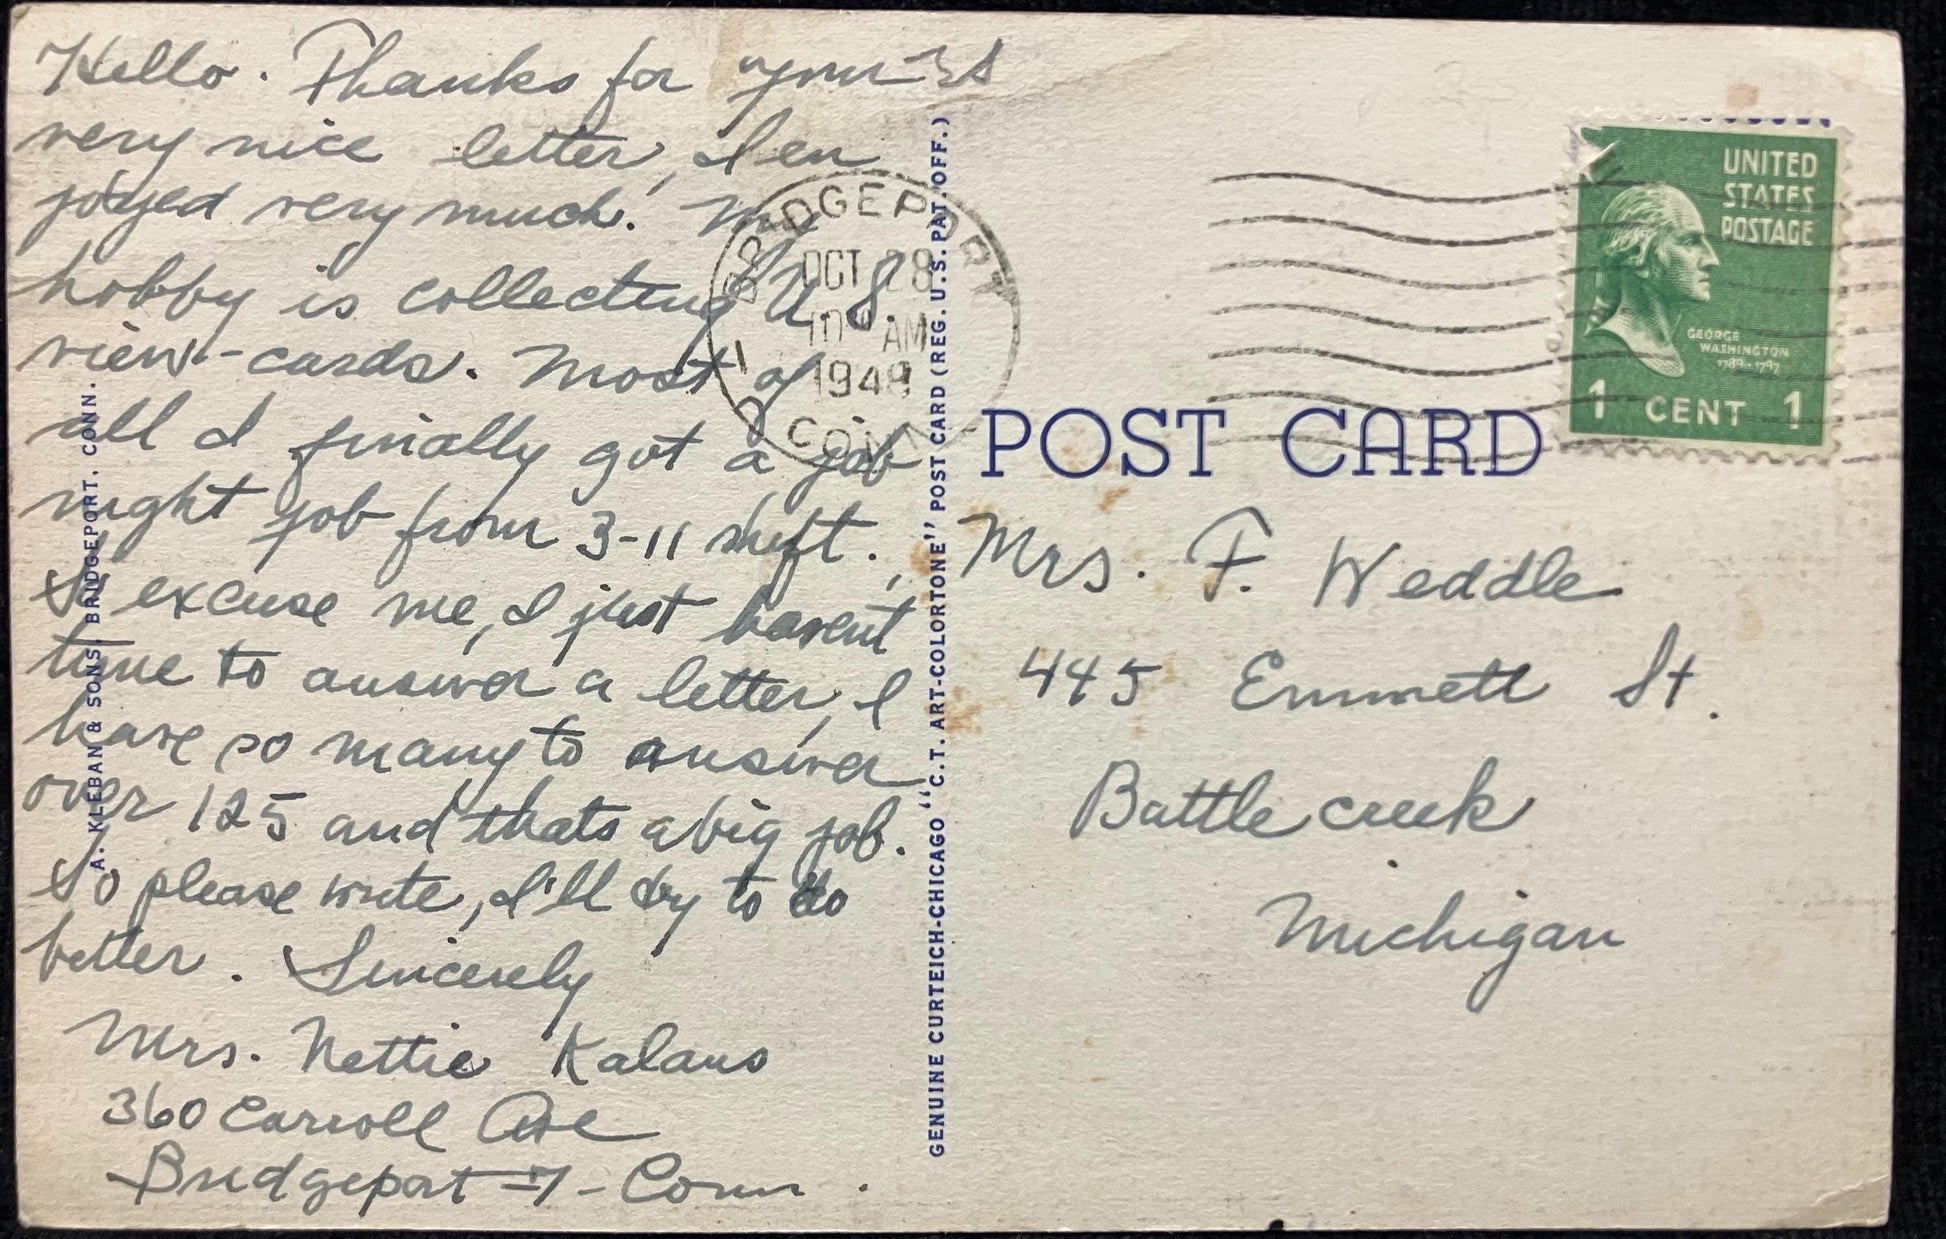 Hello. Thanks for your
very nice letter, I en
joyed very much. My
hobby is collecting U.S.
view-cards. Most of
all I finally got a job
night job from 3-11 shift.
So excuse me, I just havent
time to answer a letter, I
have so many to answer
over 125 and thats a big job.
So please write, I'll try to do
better. Sincerely
Mrs. Nettie Kalaus
360 Carroll Ave
Bridgeport-7-Conn.
A. KLEBAN & SONS, BRIDGEPORT, CONN.
BRIDGEPORT
OCT 28
10 AM
1948
CONN.
1
GENUINE CURTEICH-CHICAGO "C.T. ART-COLORTONE" POST CARD (REG. U.S. PAT. OFF.)
UNITED
STATES
POSTAGE
GEORGE
WASHINGTON
1789-1797
1 CENT 1
POST CARD
Mrs. F. Weddle
445 Emmett St.
Battle creek
Michigan